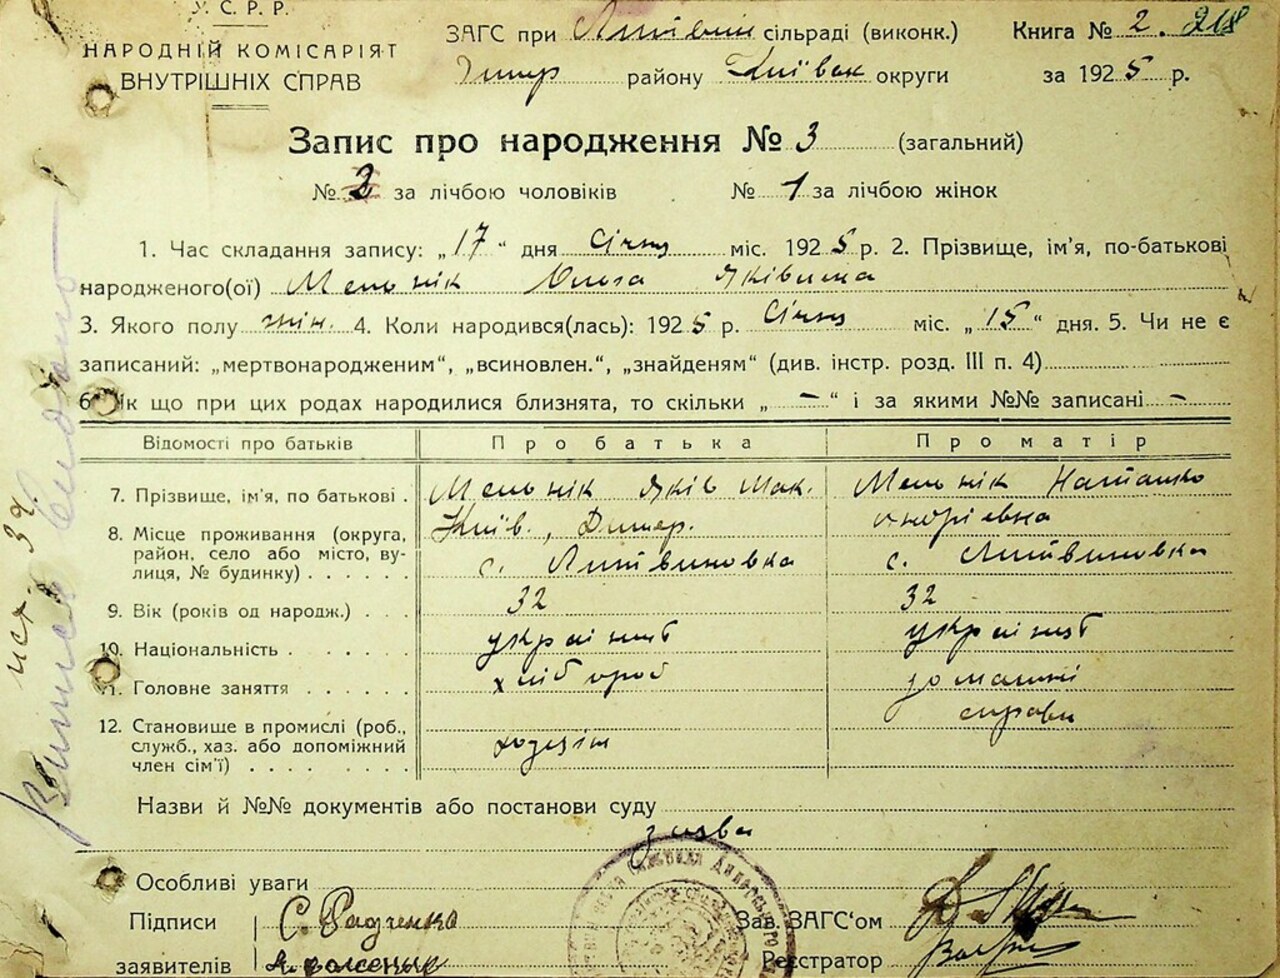 У. С. Р. Р.
НАРОДНІЙ КОМІСАРІЯТ
ВНУТРІШНІХ СПРАВ
ЗАГС при сільраді (виконк.) Книга № 2. 218
Димер району Київск округи за 1925 р.
Запис про народження № 3 (загальний)
№ 2 за лічбою чоловіків № 1 за лічбою жінок
1. Час складання запису: „17“ дня Січня міс. 1925 р. 2. Прізвище, ім'я, по-батькові
народженого(ої) Мельнік Ольга Яківина
3. Якого полу жін. 4. Коли народився(лась): 1925 р. Січня міс. „15“ дня. 5. Чи не є
записаний: „мертвонародженим“, „всиновлен.“, „знайденям“ (див. інстр. розд. III п. 4)
6. Як що при цих родах народилися близнята, то скільки „—“ і за якими №№ записані —
Відомості про батьків Про батька Про матір
7. Прізвище, ім'я, по батькові . Мельнік Яків Мак. Мельнік Наташко
андріевна
8. Місце проживання (округа, район, село або місто, вулиця, № будинку) . . . . . . Київ., Димер.
с. Литвиновка с. Литвиновка
9. Вік (років од народж.) . . . 32 32
10. Національність . . . . . . україн україн
11. Головне заняття . . . . . . хлібороб домашні
справи
12. Становище в промислі (роб.,
служб., хаз. або допоміжний
член сім'ї) . . . . . . . . .
Назви й №№ документів або постанови суду
заява
Особливі уваги
Підписи С. Радченко Зав. ЗАГС'ом
заявителів Реєстратор